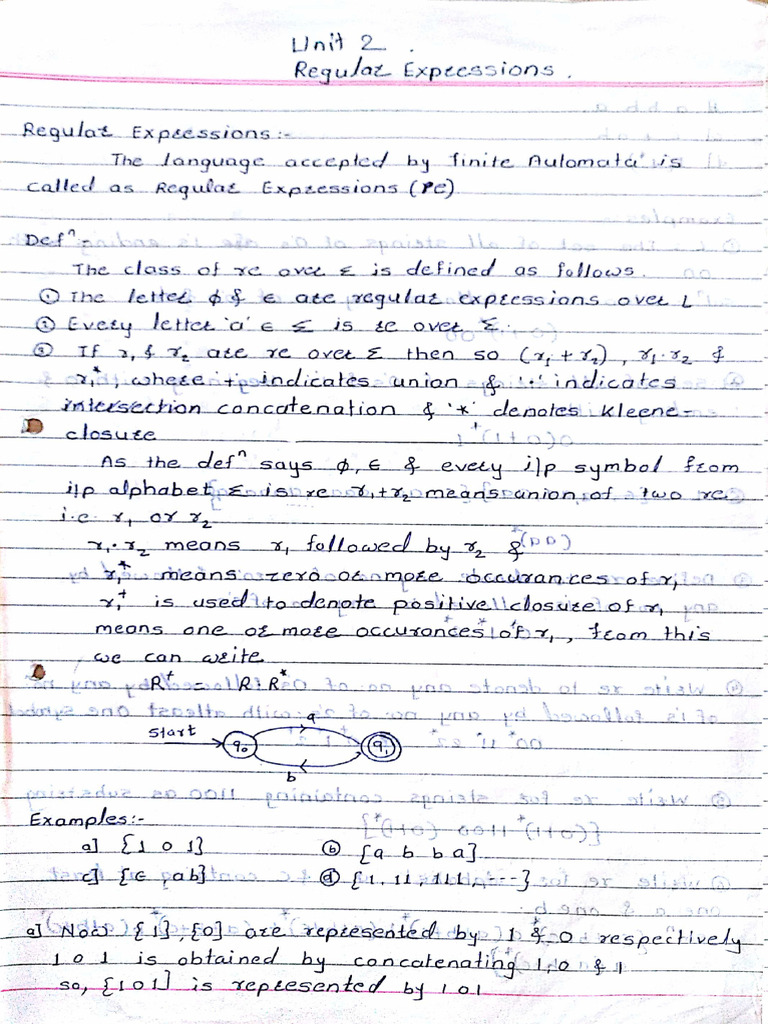 Unit 2.
Regular Expressions.
Regular Expressions:-
The language accepted by finite Automata is
called as Regular Expressions (re)
Defⁿ-
The class of re over Σ is defined as follows.
① The letter ϕ & ϵ are regular expressions over L
② Every letter 'a' ϵ Σ is re over Σ.
③ If r₁ & r₂ are re over Σ then so (r₁ + r₂), r₁·r₂ &
r₁*, where + indicates union & '·' indicates
intersection concatenation & '*' denotes Kleene-
closure
As the defⁿ says ϕ, ϵ & every i/p symbol from
i/p alphabet Σ is re r₁+r₂ means union of two re
i.e. r₁ or r₂
r₁·r₂ means r₁ followed by r₂ &
r₁* means zero or more occurances of r₁
r₁⁺ is used to denote positive closure of r₁
means one or more occurances of r₁, from this
we can write
R⁺ = R·R*
a
start
q₀ q₁
b
Examples:-
a] {1 0 1} ⓑ {a b b a}
c] {ϵ ab} ⓓ {1, 11, 111, ---}
a] Now {1}, {0} are represented by 1 & 0 respectively
1 0 1 is obtained by concatenating 1, 0 & 1
so, {101} is represented by 101